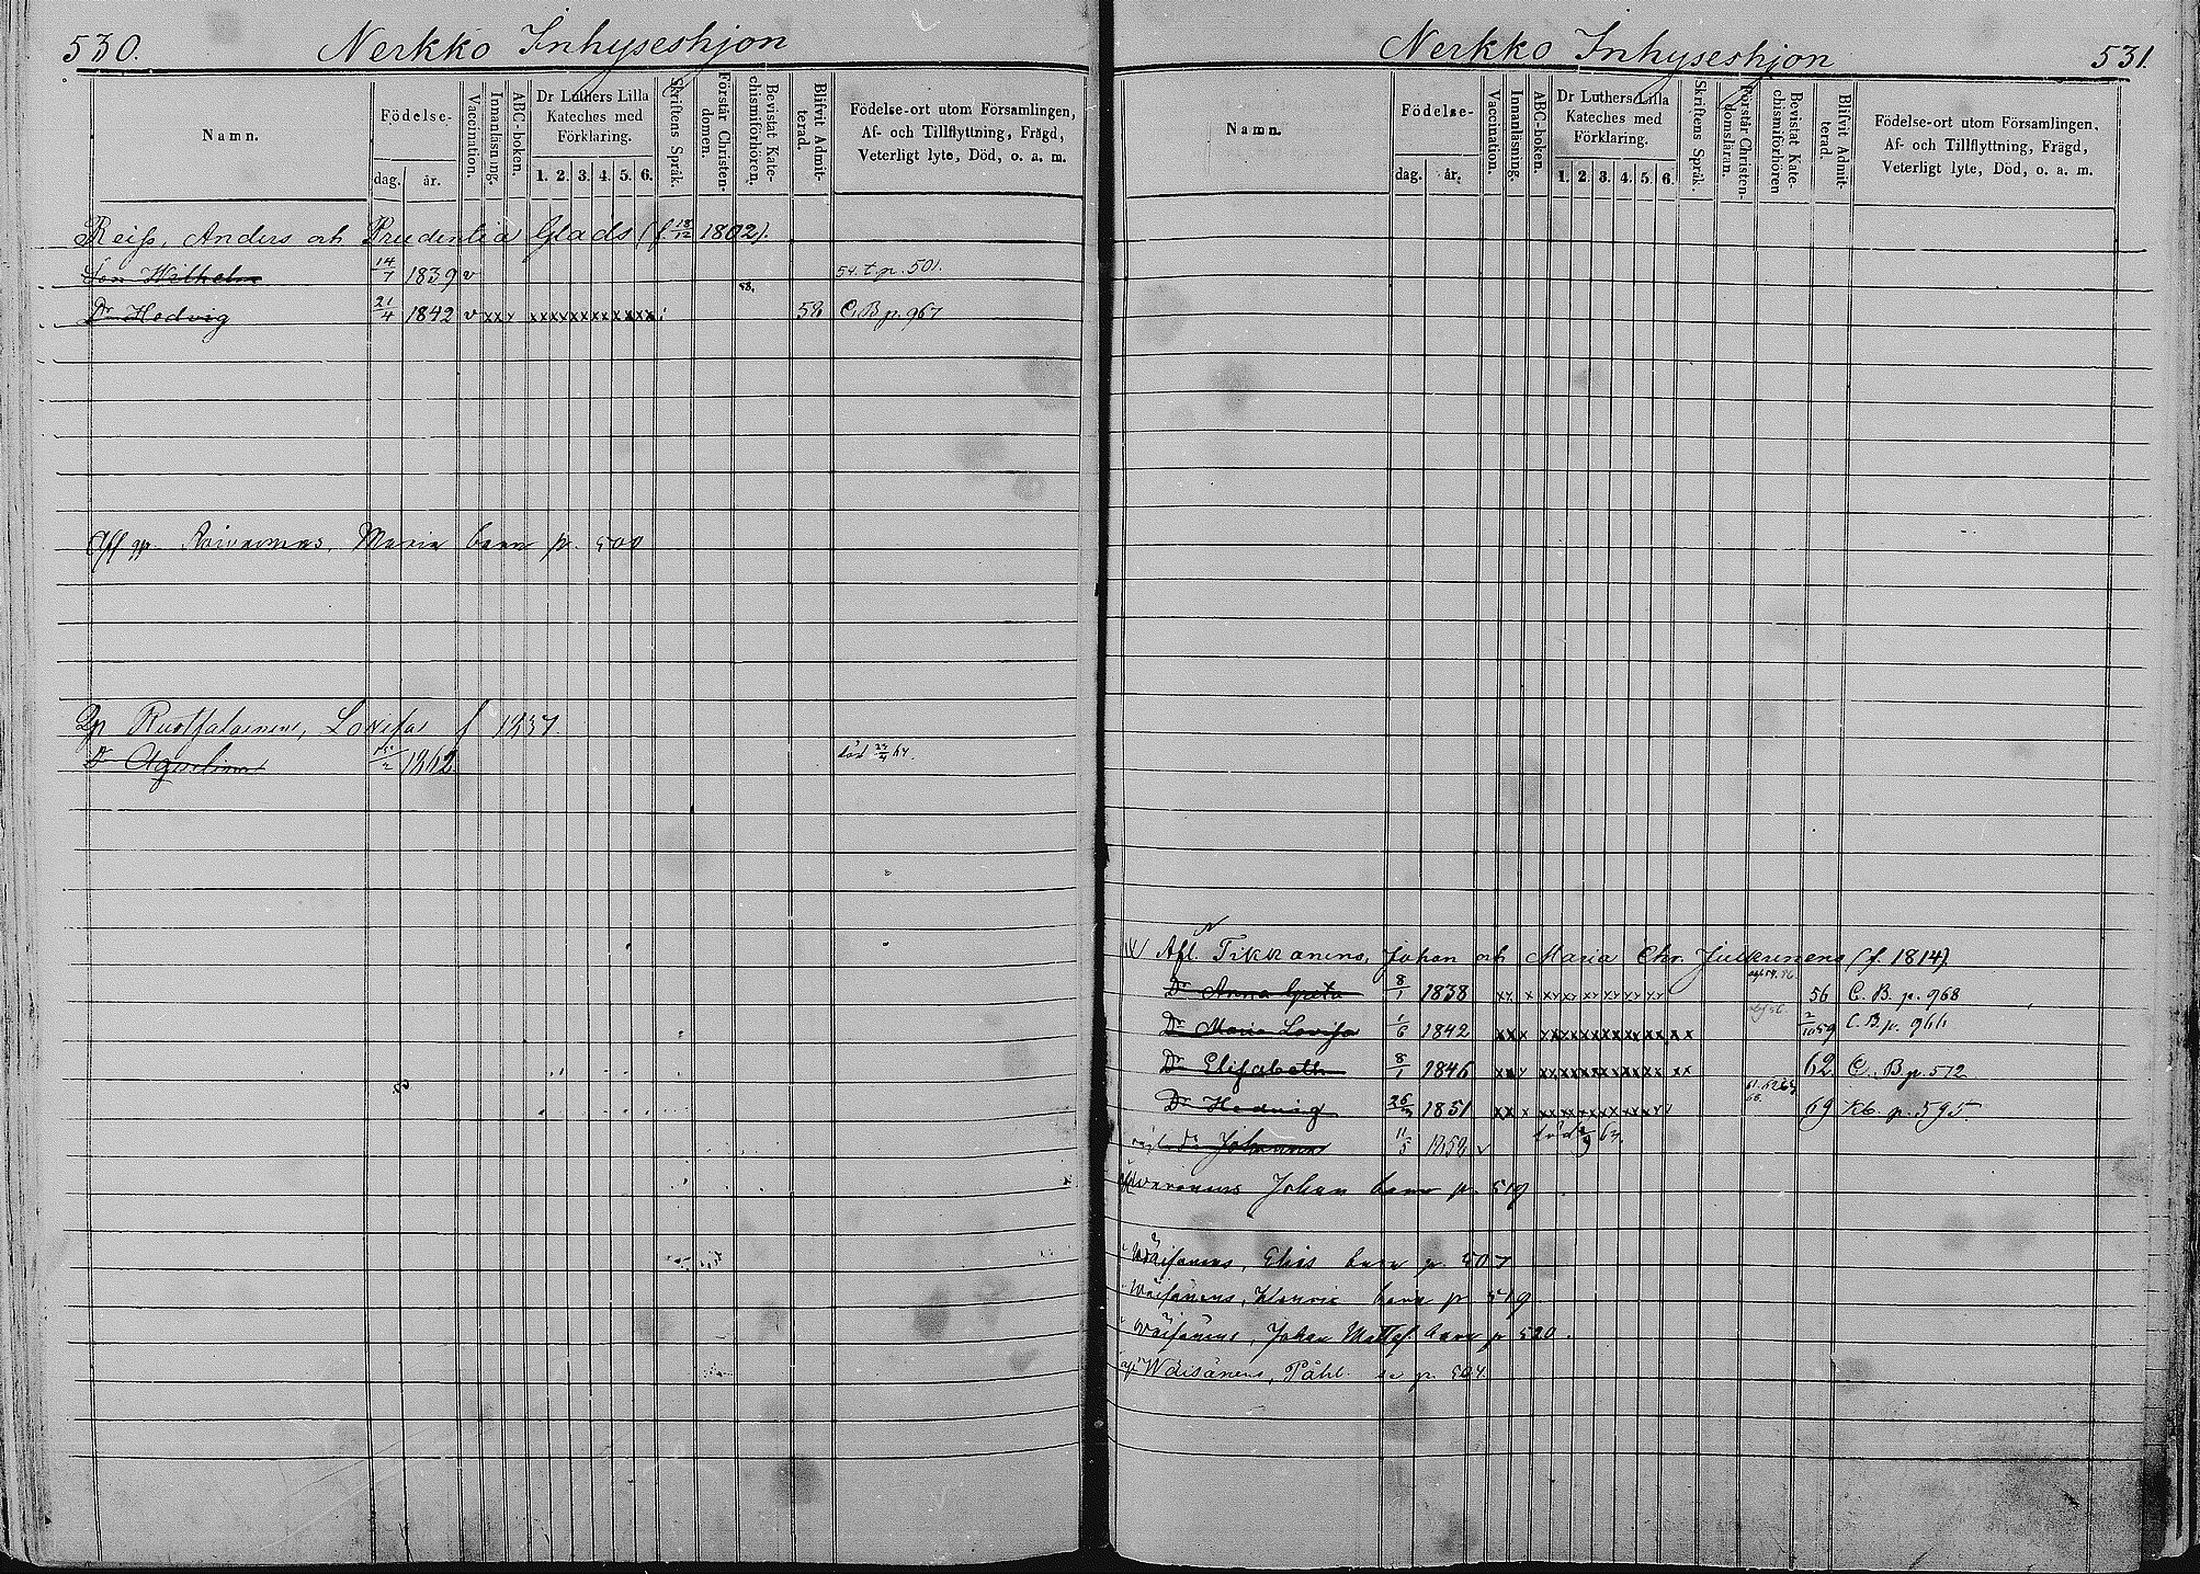 530.
Nerkko Inhyseshjon
Namn.
Födelse-
dag. år.
Vaccination.
Innanläsning.
ABC-boken.
Dr Luthers Lilla
Kateches med
Förklaring.
1. 2. 3. 4. 5. 6.
Skriftens Språk.
Förstår Christen-
domen.
Bevistat Kate-
chismiförhören.
Blifvit Admit-
terad.
Födelse-ort utom Församlingen,
Af- och Tillflyttning, Frägd,
Veterligt lyte, Död, o. a. m.
Reiſs, Anders och Prudentia Glads (f. 18/12 1802).
Son Wilhelm 14/7 1839 v 54. t. p. 501.
58.
Dr Hedvig 21/4 1842 v xxx xxxxxxxxxxxx 58 C. B p. 967
Maria barn p. 500
Lovisa f 1837
Dr 1862 död 64.
Nerkko Inhyseshjon
531.
Namn.
Födelse-
dag. år.
Vaccination.
Innanläsning.
ABC-boken.
Dr Luthers Lilla
Kateches med
Förklaring.
1. 2. 3. 4. 5. 6.
Skriftens Språk.
Förstår Christen-
domsläran.
Bevistat Kate-
chismiförhören
Blifvit Admit-
terad.
Födelse-ort utom Församlingen,
Af- och Tillflyttning, Frägd,
Veterligt lyte, Död, o. a. m.
Afl. Tikkanens, Johan och Maria Chr. Julkunens (f. 1814).
Dr Anna Greta 8/1 1838 xx x xxxxxxxxxxxx 56 C. B. p. 968
Dr Maria Lovisa 1/6 1842 xxx xxxxxxxxxxxxxx 2/10 59 C. B p. 966
Dr Elisabeth 8/1 1846 xxx xxxxxxxxxxxx xx 62 C. B p. 572
Dr Hedvig 26/3 1851 xx x xxxxxxxxxxxx 69 Kb. p. 595
Johanna 11/5 1858 v död
Johan barn p. 519
Wäisänens, Elias barn p. 507
Wäisänens, barn p 519
Wäisänens, Johan Mattss barn p 520.
Wäisänens, Påhl se p. 504